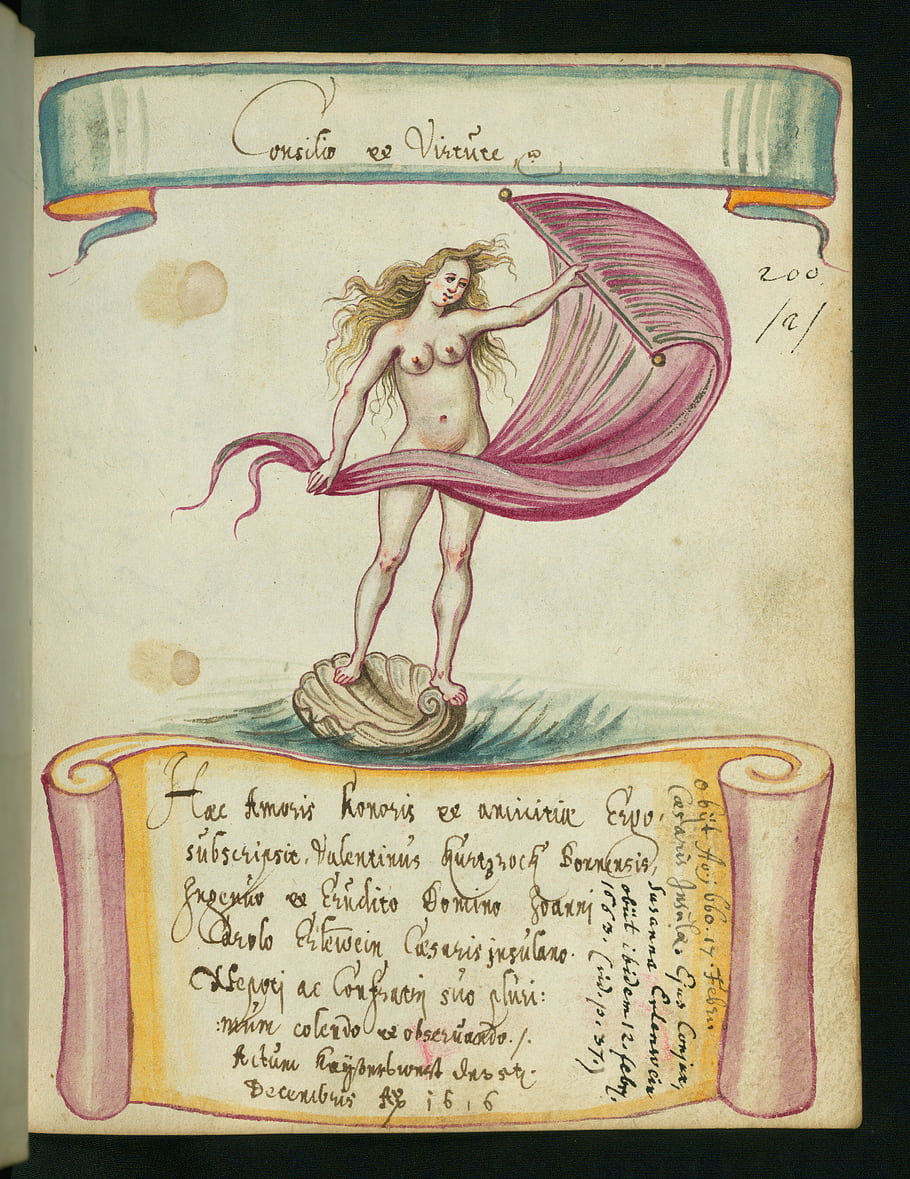 Consilio et Virtute
200
/a/
Hæc Amoris Honoris et amicitiæ Ergo,
subscripsit, Valentinus Kurtzrock Bonnensis,
Ingenuo et Erudito Domino Joanni
Carolo Erlewein Cæsaris insulano.
Nepoti ac Confratri suo pluri:
:mum colendo et observando ./.
Actum Keyserswert
Decembris Aº 1616
obijt Aº 1660. 17 Febru
Cæsaris Insulæ Ejus Conjux,
Susanna Erlenwein
obiit ibidem 12. febr.
1663. (vid. p. 37.)